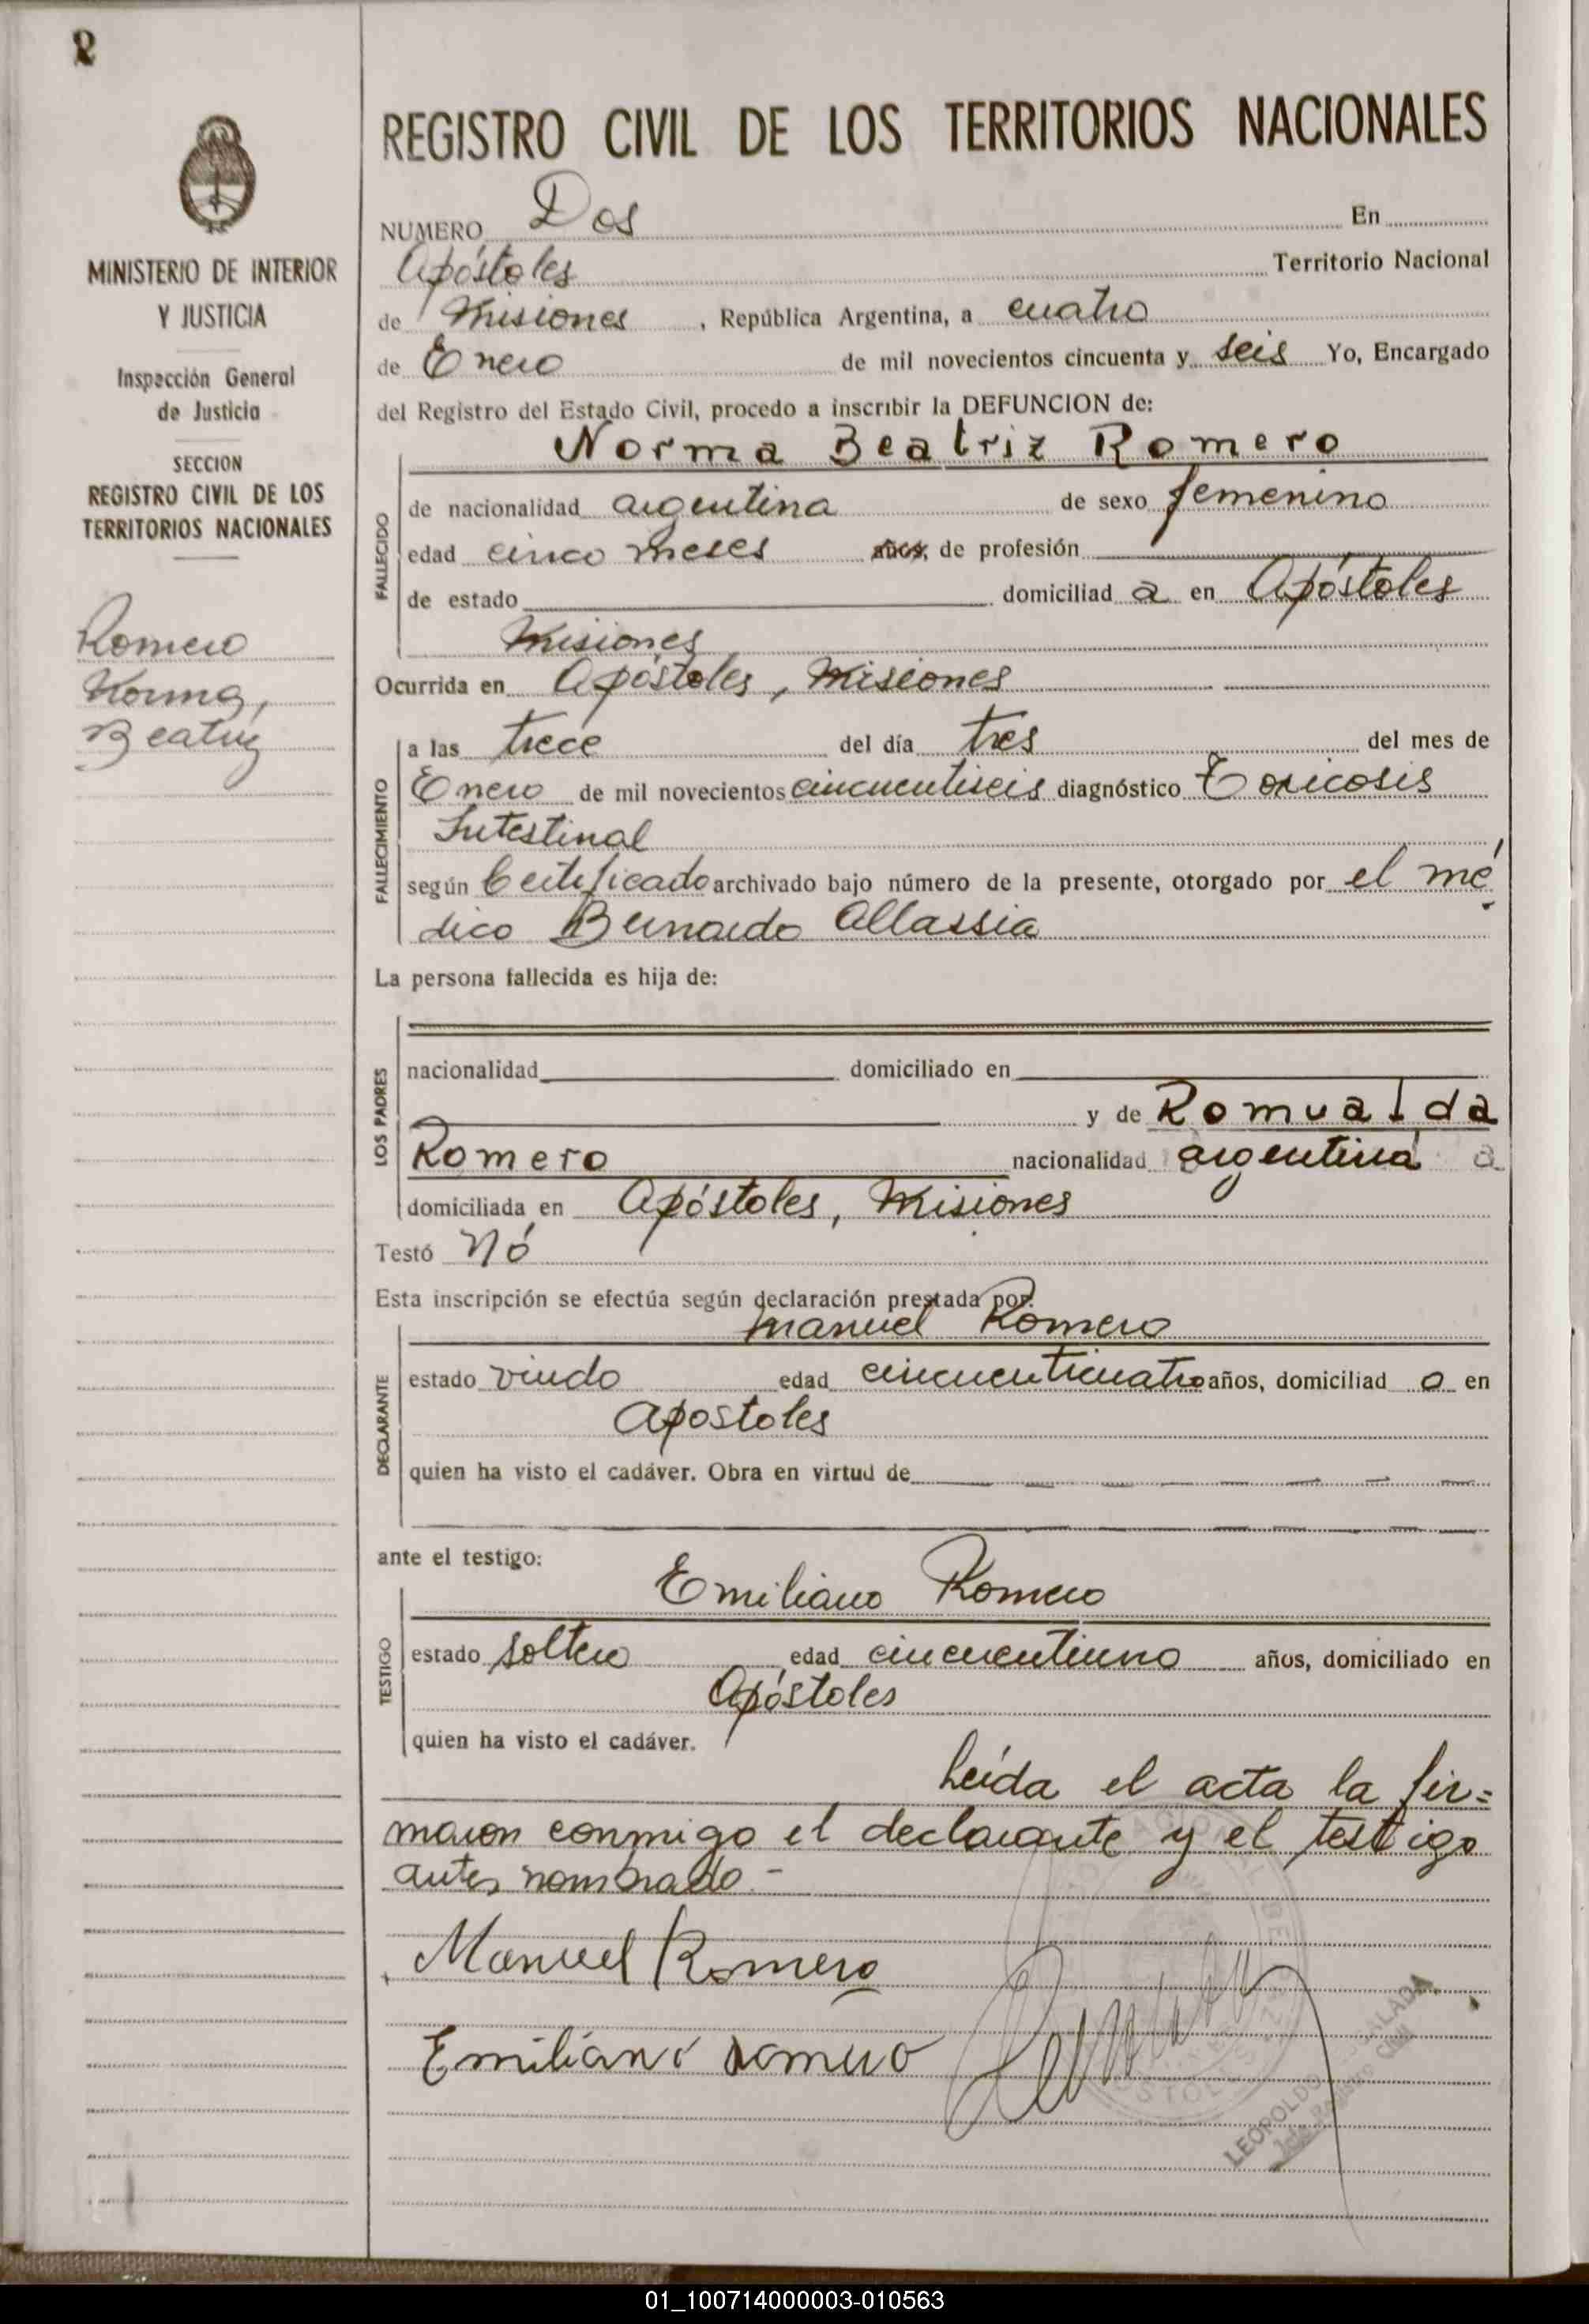 2
MINISTERIO DE INTERIOR
Y JUSTICIA
Inspección General
de Justicia
SECCION
REGISTRO CIVIL DE LOS
TERRITORIOS NACIONALES
Romero
Norma,
Beatriz
REGISTRO CIVIL DE LOS TERRITORIOS NACIONALES
NUMERO Dos En
Apóstoles Territorio Nacional
de Misiones , República Argentina, a cuatro
de Enero de mil novecientos cincuenta y seis Yo, Encargado
del Registro del Estado Civil, procedo a inscribir la DEFUNCION de:
Norma Beatriz Romero
FALLECIDO
de nacionalidad argentina de sexo femenino
edad cinco meses años, de profesión
de estado domiciliad a en Apóstoles
Misiones
Ocurrida en Apóstoles, Misiones
FALLECIMIENTO
a las trece del día tres del mes de
Enero de mil novecientos cincuentiseis diagnóstico Toxicosis
Intestinal
según Certificado archivado bajo número de la presente, otorgado por el mé
dico Bernardo Allassia
La persona fallecida es hija de:
LOS PADRES
nacionalidad domiciliado en
y de Romualda
Romero nacionalidad argentina a
domiciliada en Apóstoles, Misiones
Testó Nó
Esta inscripción se efectúa según declaración prestada por:
Manuel Romero
DECLARANTE
estado viudo edad cincuenticuatro años, domiciliad o en
Apostoles
quien ha visto el cadáver. Obra en virtud de
ante el testigo:
Emiliano Romero
TESTIGO
estado soltero edad cincuentiuno años, domiciliado en
Apóstoles
quien ha visto el cadáver.
Leída el acta la fir=
maron conmigo el declarante y el testigo
antes nombrado.-
Manuel Romero
Emiliano Romero
LEOPOLDO
Jefe Registro Civil
01_100714000003-010563